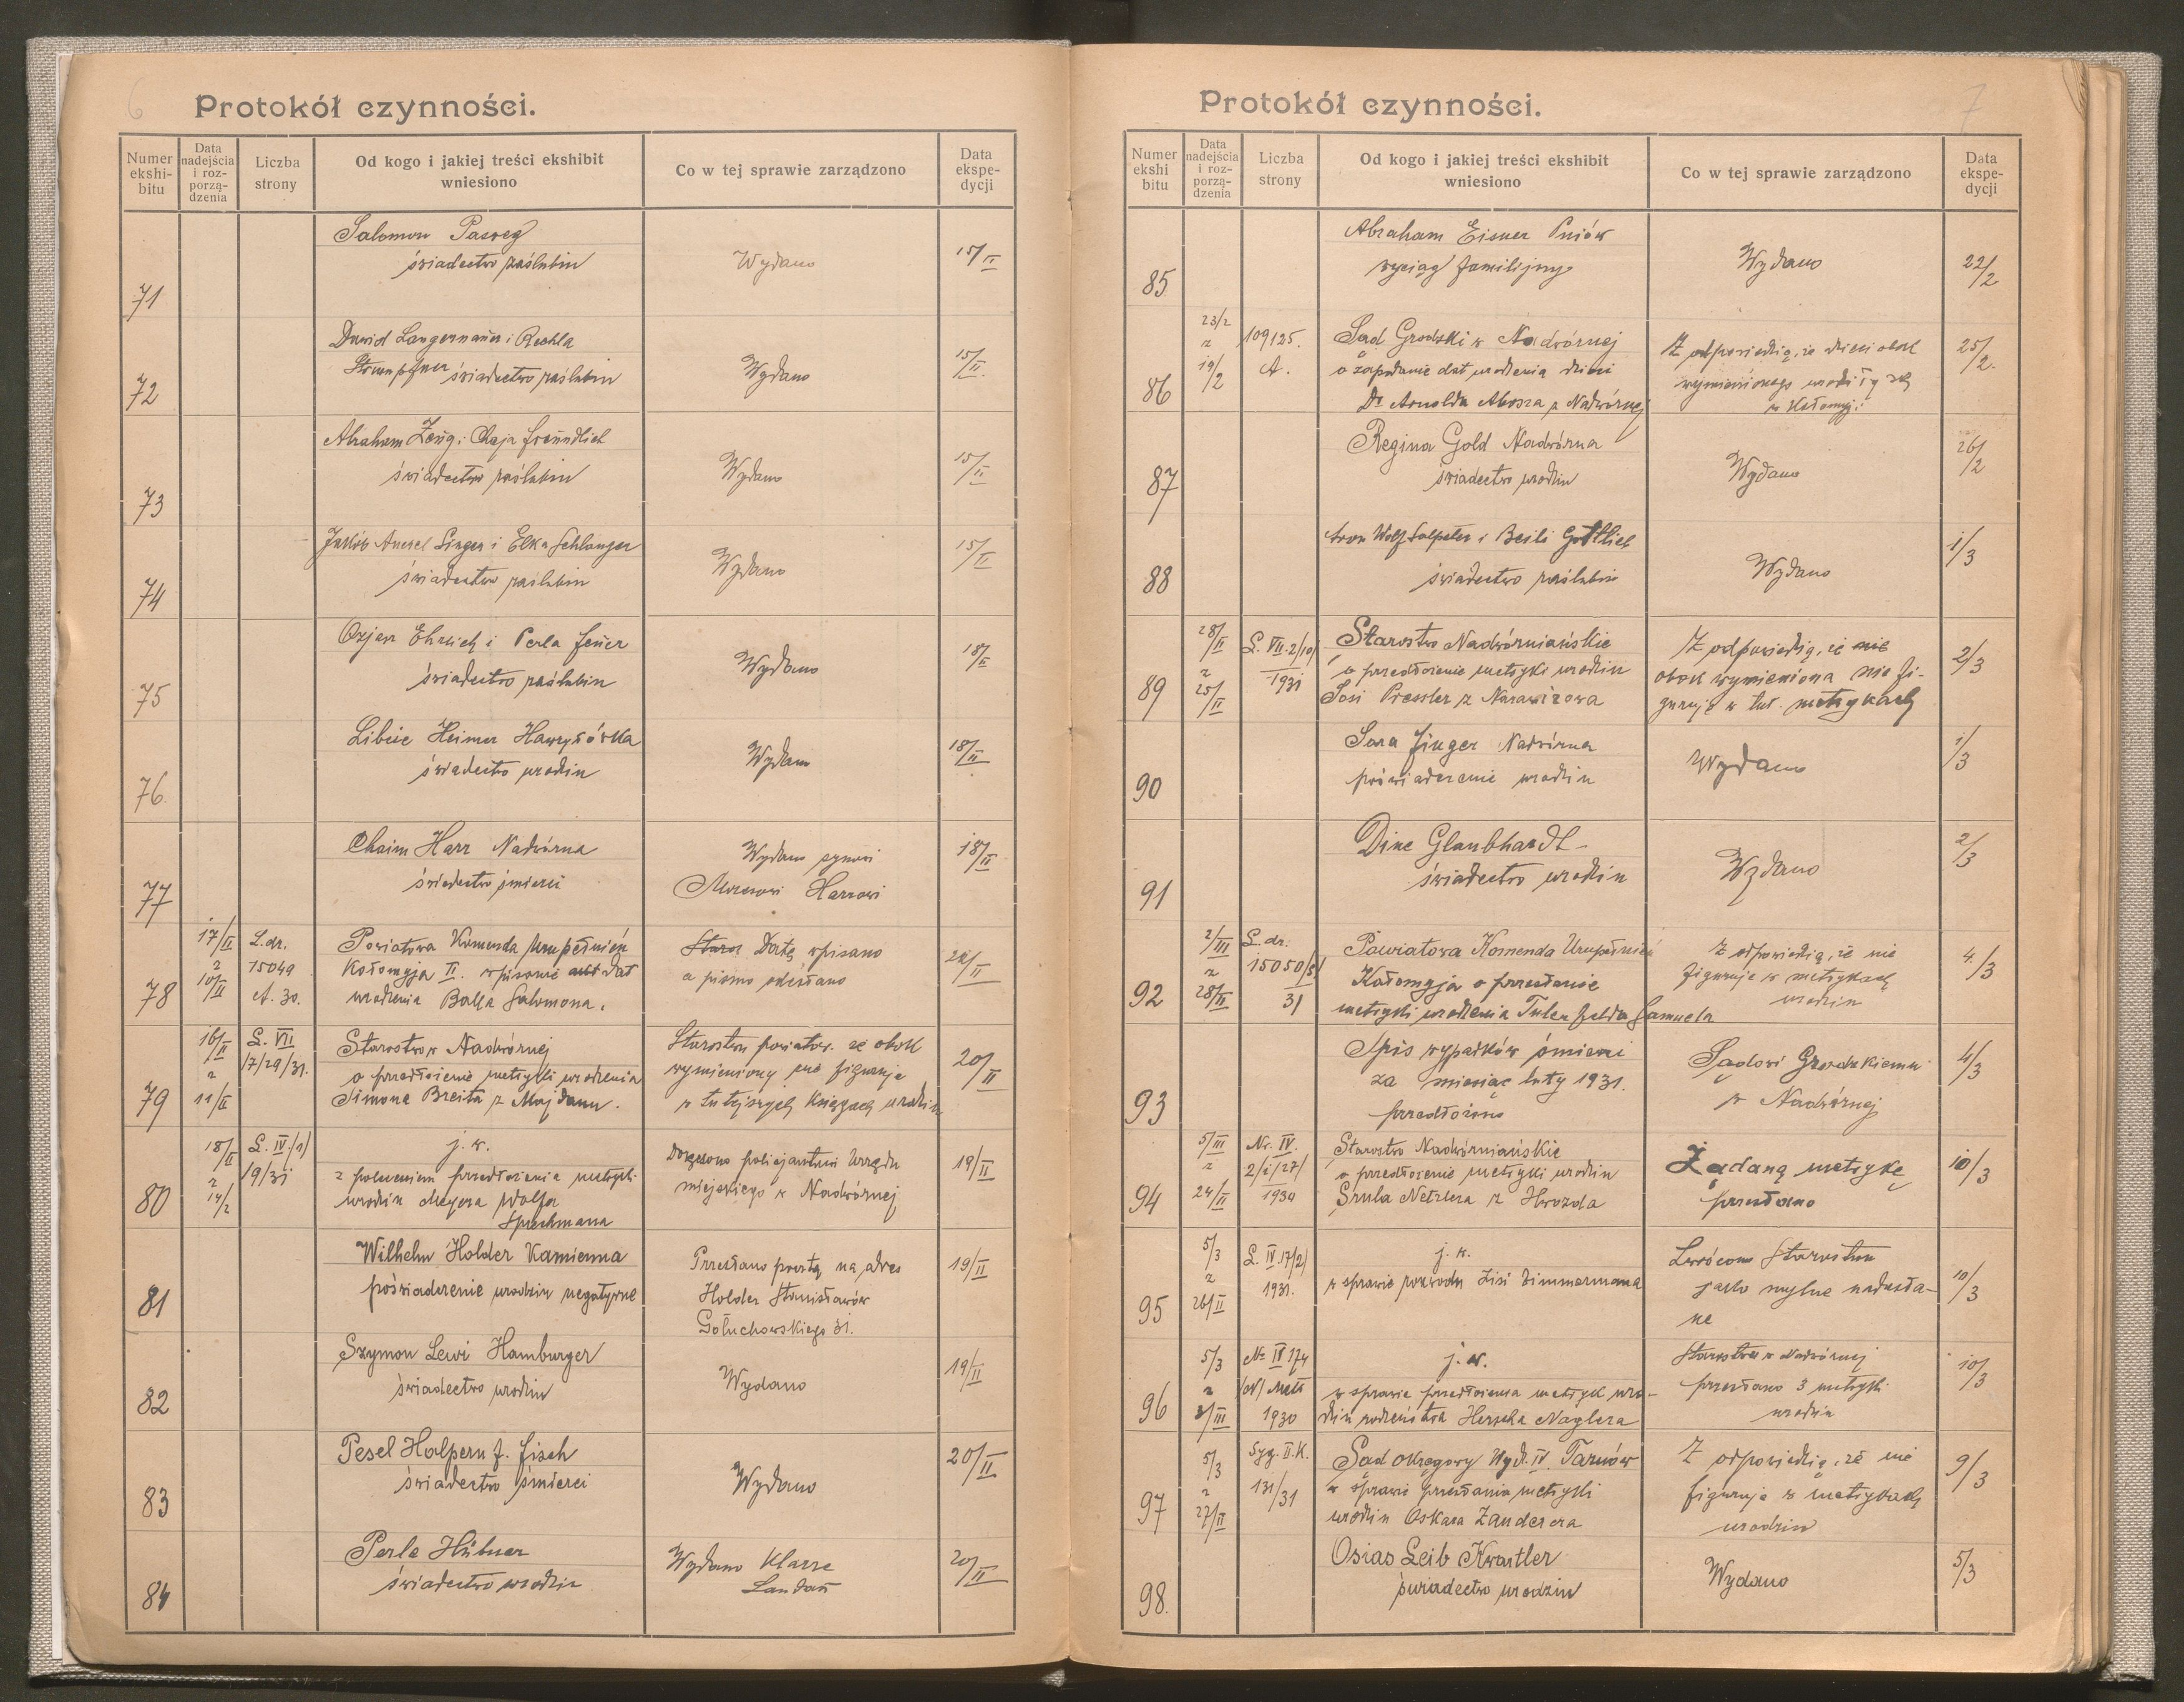 6
Protokół czynności.
Numer ekshi-bitu
Data nadejścia i roz-porzą-dzenia
Liczba strony
Od kogo i jakiej treści ekshibit wniesiono
Co w tej sprawie zarządzono
Data ekspe-dycji
71
Salomon Pasweg
świadectwo zaślubin
Wydano
15/II
72
Dawid Langermauer i Rechla
Strumpfner świadectwo zaślubin
Wydano
15/II
73
Abraham Zeug i Chaja Freundlich
świadectwo zaślubin
Wydano
15/II
74
Jakób Anszel Singer i Elka Schlanger
świadectwo zaślubin
Wydano
15/II
75
Ozjasz Ehrlich i Perla Feuer
świadectwo zaślubin
Wydano
18/II
76
Libcie Heimer Hawryłówka
świadectwo urodzin
Wydano
18/II
77
Chaim Harr Nadwórna
świadectwo śmierci
Wydano synowi
Mozesowi Harrowi
18/II
78
17/II
z
10/II
L.dr.
15049
A. 30.
Powiatowa Komenda Uzupełnień
Kołomyja II. wpisanie dat
urodzenia Balla Salomona.
Datę wpisano
a pismo odesłano
II
79
16/II
z
11/II
L. VII
/7/29/31.
Starostwo w Nadwórnej
o przedłożenie metryki urodzenia
Simona Breita z Majdanu.
Starostwu powiatow. że obok
wymieniony nie figuruje
w tutejszych księgach urodzin
20/II
80
18/II
z
14/2
L. IV/1/
19/31
j. w.
z poleceniem przedłożenia metryki
urodzin Mejera Wolfa
Sprechmana
Doręczono policjantowi Urzędu
miejskiego w Nadwórnej
19/II
81
Wilhelm Holder Kamienna
poświadczenie urodzin negatywne
Przesłano pocztą na adres
Holder Stanisławów
Gołuchowskiego 31.
19/II
82
Szymon Lewi Hamburger
świadectwo urodzin
Wydano
19/II
83
Pesel Halpern f. Fisch
świadectwo śmierci
Wydano
20/II
84
Perla Hübner
świadectwo urodzin
Wydano Klarze
Landau
20/II
7
Protokół czynności.
Numer ekshi bitu
Data nadejścia i roz-porzą-dzenia
Liczba strony
Od kogo i jakiej treści ekshibit wniesiono
Co w tej sprawie zarządzono
Data ekspe-dycji
85
Abraham Eisner Pniów
wyciąg familijny
Wydano
22/2
86
23/2
z
19/2
109125.
A.
Sąd Grodzki w Nadwórnej
o zapodanie dat urodzenia dzieci
Dr Arnolda Abosza z Nadwórnej
Z odpowiedzią, że dzieci obok
wymienionego urodziły się
w Kołomyji
25/2.
87
Regina Gold Nadwórna
świadectwo urodzin
Wydano
26/2
88
Aron Wolf Salpeter i Beili Gottlieb
świadectwo zaślubin
Wydano
1/3
89
28/II
z
25/II
L. VII.2/10/
1931
Starostwo Nadwórniańskie
o przedłożenie metryki urodzin
Sosi Pressler z Narawizowa
Z odpowiedzią, że nie
obok wymieniona nie fi-
guruje w tut. metrykach
2/3
90
Sara Finger Nadwórna
poświadczenie urodzin
Wydano
1/3
91
Dine Glaubhardt -
świadectwo urodzin
Wydano
2/3
92
2/III
z
28/II
L. dr.
15050/
31
Powiatowa Komenda Uzupełnień
Kołomyja o przesłanie
metryki urodzenia Samuela
Z odpowiedzią, że nie
figuruje w metrykach
urodzin
4./3
93
Spis wypadków śmierci
za miesiąc luty 1931.
przedłożono
Sądowi Grodzkiemu
w Nadwórnej
4/3
94
5/III
z
24/II
Nr. IV.
2/1/27/
1930
Starostwo Nadwórniańskie
o przedłożenie metryki urodzin
Srula Netzlera z Hwozda
Żądaną metrykę
przesłano
10/3
95
5/3
z
26/II
L. IV.17/2/
1931.
j. w.
w sprawie rozwodu Zisi Zimmermana
Zwrócono Starostwu
jako mylne nadesła-
ne
10/3
96
5/3
z
3/III
No IV 174
1930
j. w.
w sprawie przedłożenia metryk uro-
dzin rodzeństwa Herscha Naglera
Starostwu w Nadwórnej
przesłano 3 metryki
urodzin
10/3
97
5/3
z
27/II
Syg. II.K.
131/31
Sąd okręgowy Wydz. IV. Tarnów
w sprawie przesłania metryki
urodzin Oskara Zanderera
Z odpowiedzią, że nie
figuruje w metrykach
urodzin
9/3
98.
Osias Leib Kwartler
świadectwo urodzin
Wydano
5/3